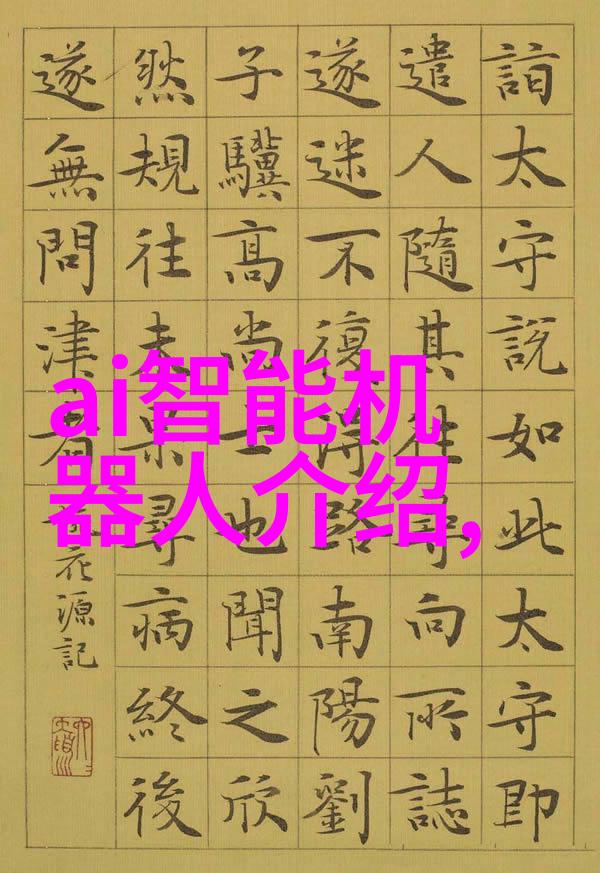 詣太守說如此太守即
遣人隨其往尋向所誌
遂迷不復得路南陽劉
子驥髙尚士也聞之欣
然規往未果尋病終後
遂無問津者
花源記
ai智能机
器人介绍,